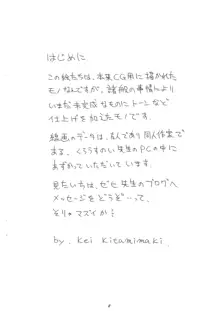 はじめに
この絵たちは、本来CG用に描かれた
モノなんですが、諸般の事情により
いまだ未完成なものにトーンなど
仕上げを加えたモノです。
絵画のデータは、友人であり同人作家で
ある、くろうすのい先生のPCの中に
まずねっていただいて います。
見たいちは、ゼヒ 先生のブログへ
メッセージを どうぞ…って、
そりゃマズイか!
by. Kei Kitamimaki